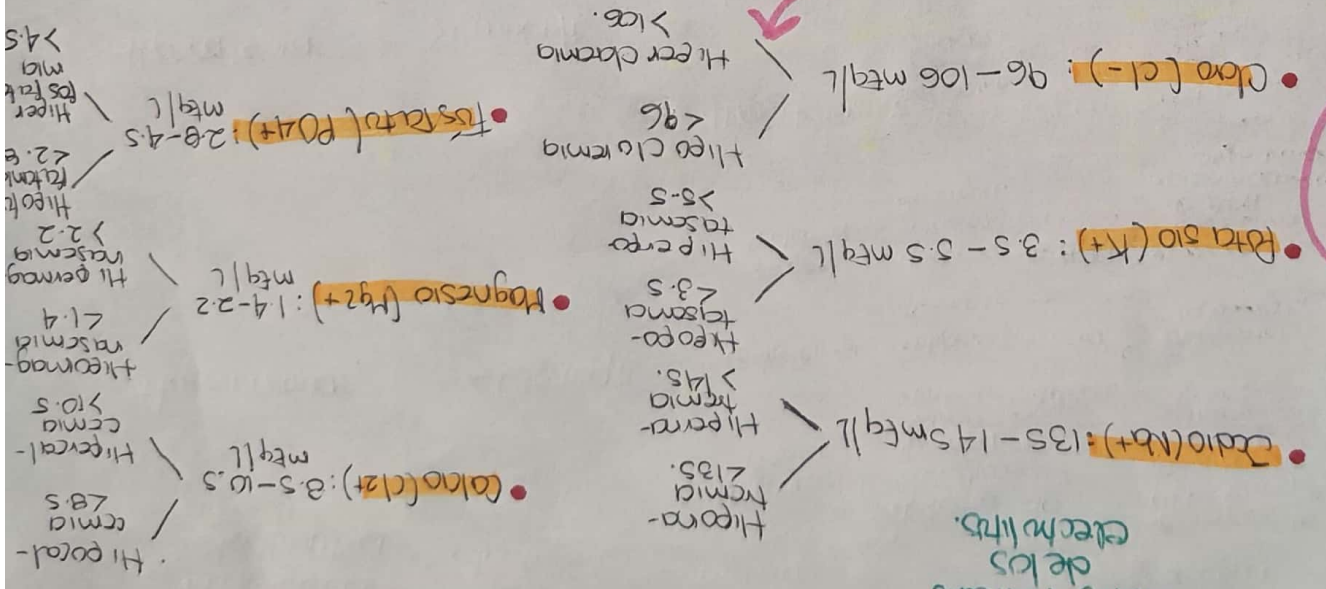 de los
electrolitos.
• Sodio (Na+): 135-145 mEq/L
Hipona-
tremia
<135.
Hiperna-
tremia
>145.
• Potasio (K+): 3.5-5.5 mEq/L
Hipopo-
tasemia
<3.5
Hiperpo
tasemia
>5.5
• Cloro (Cl-): 96-106 mEq/L
Hipocloremia
<96
Hipercloremia
>106.
• Calcio (Cl2+): 8.5-10.5
mEq/L
Hipocal-
cemia
<8.5
Hipercal-
cemia
>10.5
• Magnesio (Mg2+): 1.4-2.2
mEq/L
Hipomag-
nasemia
<1.4
Hipermag
nasemia
>2.2
• Fósfato (PO4+): 2.8-4.5
mEq/L
<2.8
Hiper
fosfate
mia
>4.5